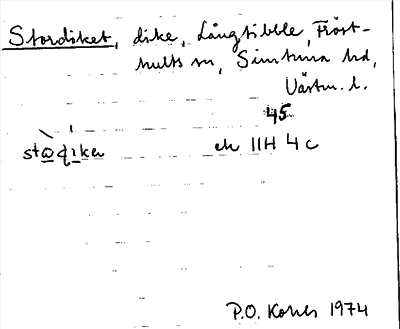 Stordiket, dike, Långtibble, Fröst-
hults sn, Simtuna hd,
Västm. l.
45
ek 11H 4c
P.O. Kohls 1974